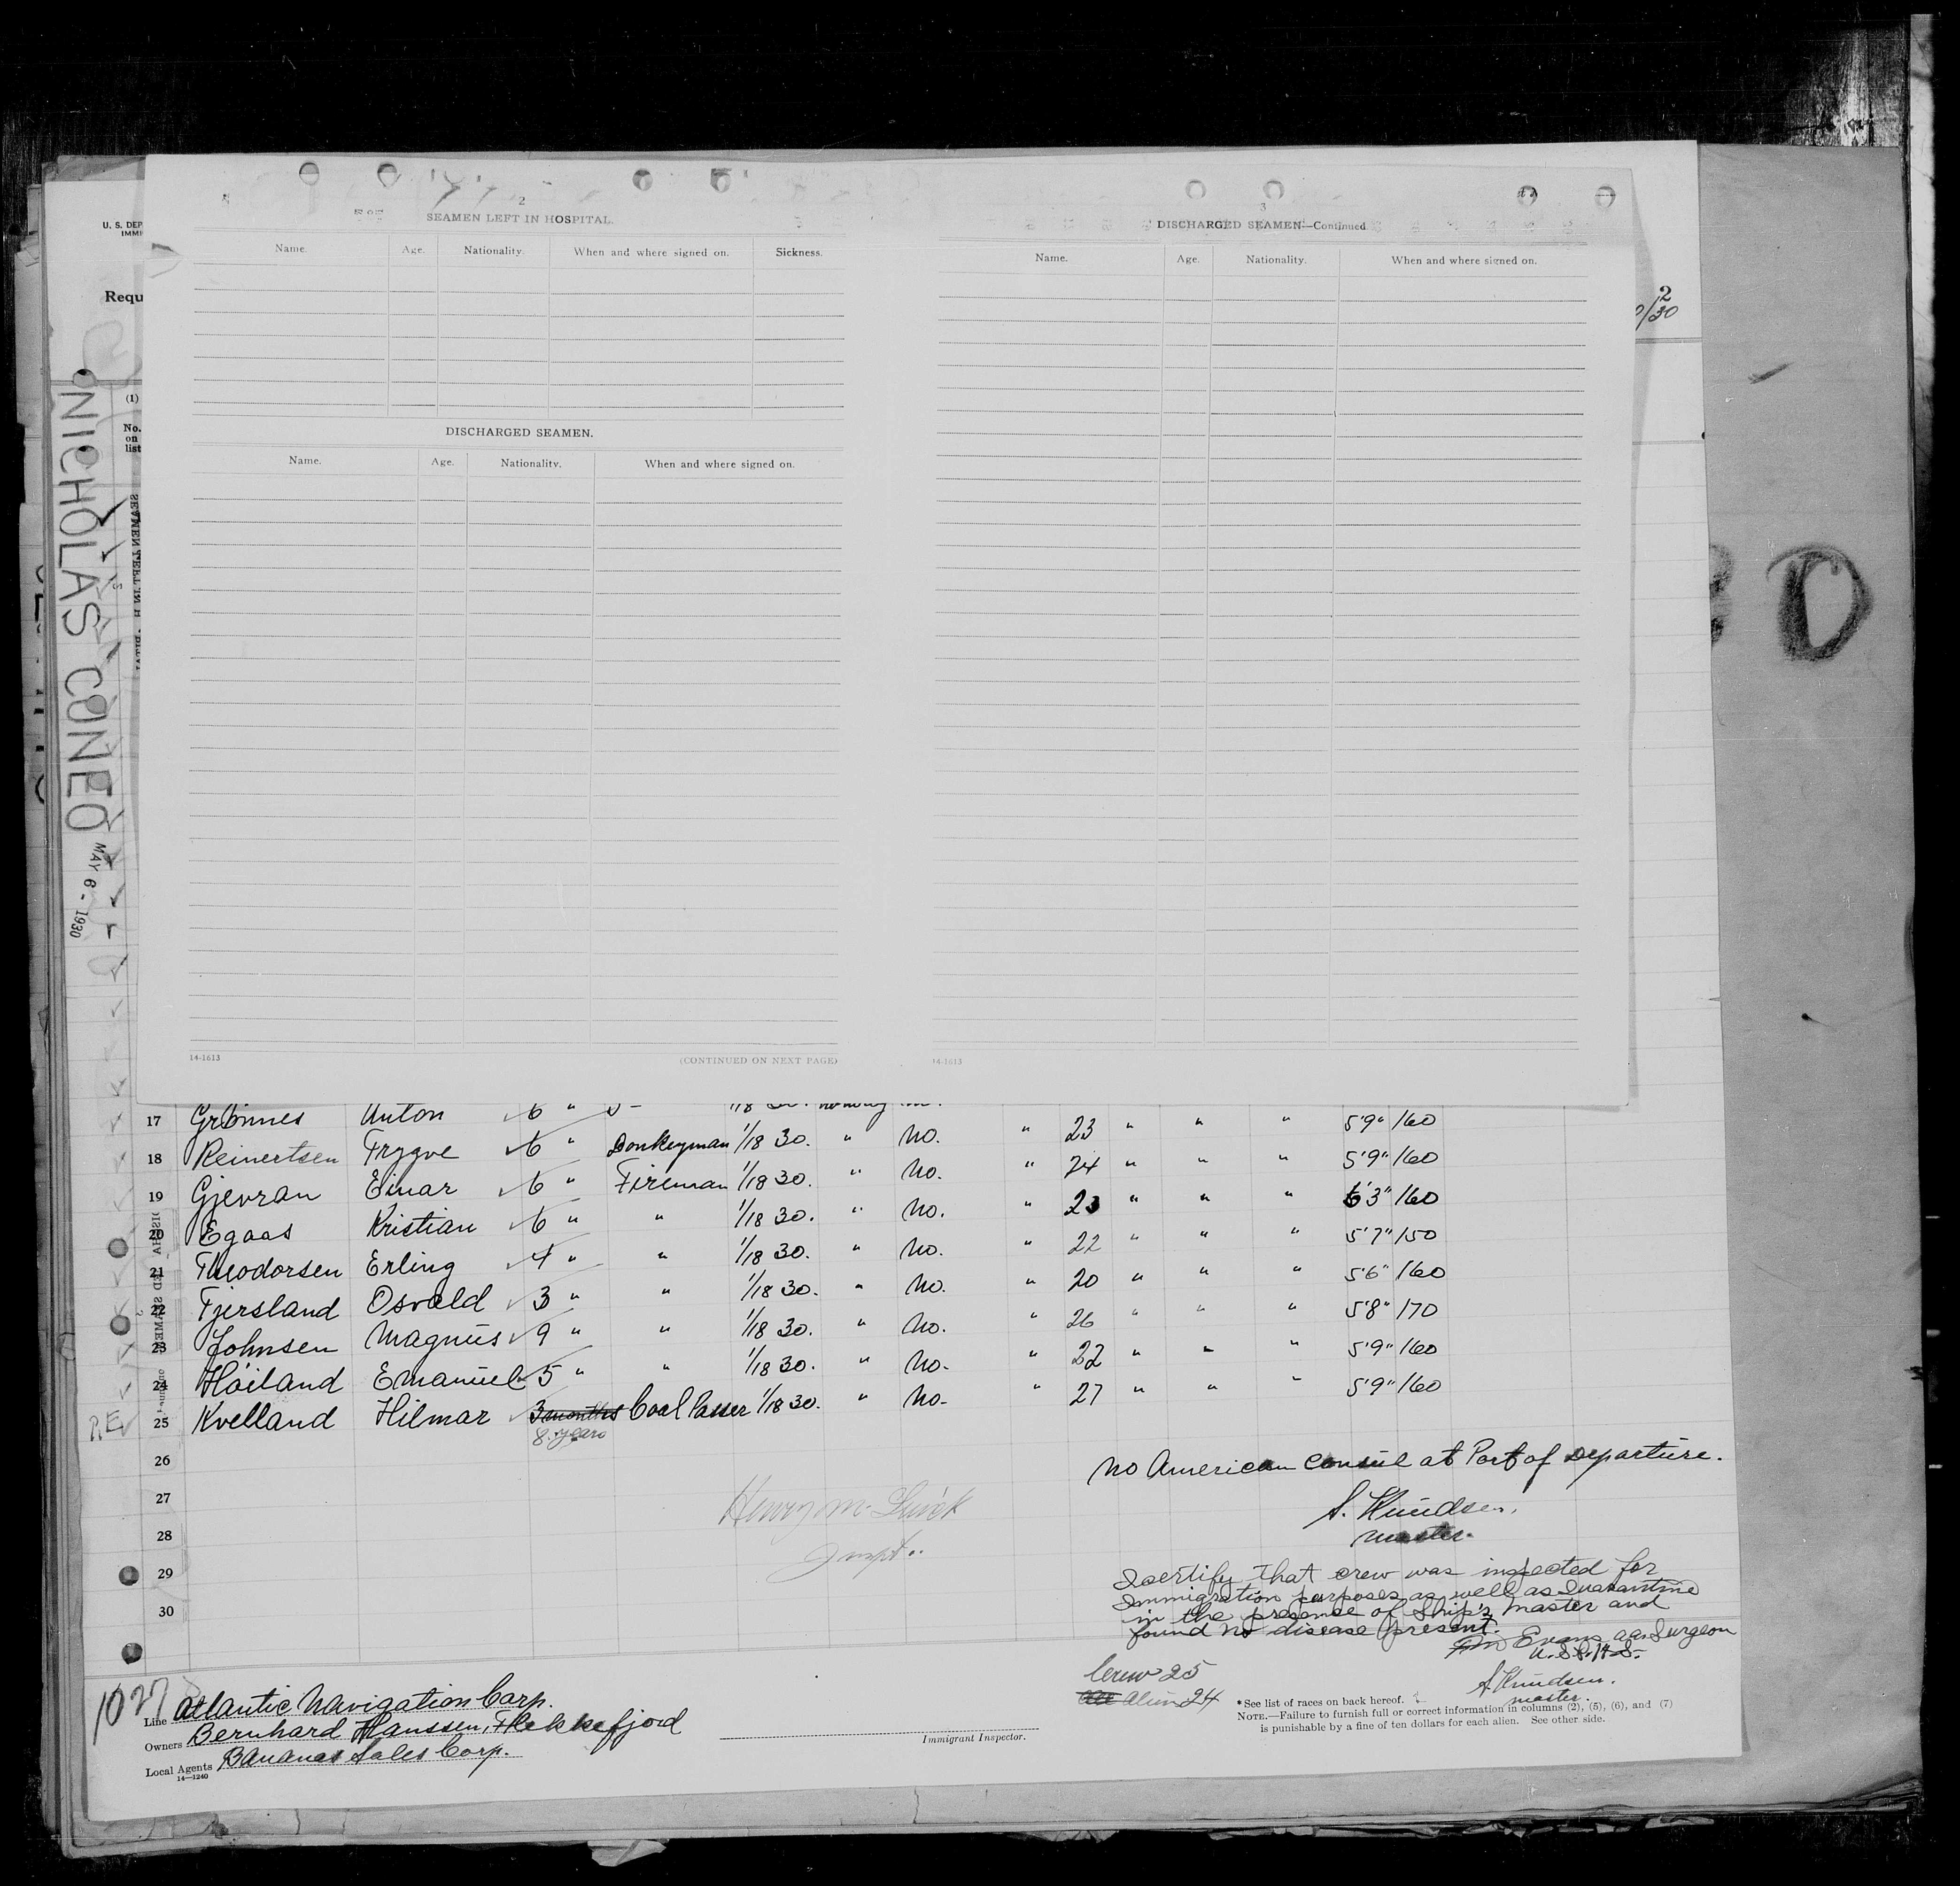 U. S. DEP
IMMI
Requ
(1)
No.
on
list
NICHOLAS CUNEO
MAY 6 - 1930
2
SEAMEN LEFT IN HOSPITAL.
Name. Age. Nationality. When and where signed on. Sickness.
DISCHARGED SEAMEN.
Name. Age. Nationality. When and where signed on.
14-1613 (CONTINUED ON NEXT PAGE)
3
DISCHARGED SEAMEN—Continued
Name. Age. Nationality. When and where signed on.
14-1613
2
/30
17 Grönnes Anton 6 "
18 Reinertsen Trygve 6 " Donkeyman 1/18 30. " no. " 23 " " " 5'9" 160
19 Gjevran Einar 6 " Fireman 1/18 30. " no. " 24 " " " 5'9" 160
20 Egaas Kristian 6 " " 1/18 30. " no. " 23 " " " 6'3" 160
21 Theodorsen Erling 4 " " 1/18 30. " no. " 22 " " " 5'7" 150
22 Tjersland Osvald 3 " " 1/18 30. " no. " 20 " " " 5'6" 160
23 Johnsen Magnus 9 " " 1/18 30. " no. " 26 " " " 5'8" 170
24 Höiland Emanuel 5 " " 1/18 30. " no. " 22 " " " 5'9" 160
25 Kvelland Hilmar 3 months Coal Passer 1/18 30. " no. " 27 " " " 5'9" 160
8 years
26
27
28
29
30
No American Consul at Port of Departure.
S. Knudsen.
master.
Henry M.
Inspt.
I certify that crew was inspected for
Immigration purposes as well as Quarantine
in the presence of Ship's Master and
found no disease present.
Evans a.a. Surgeon
U.S.P.H.S.
S Knudsen.
master.
Crew 25
Alien 24
1027
Line Atlantic Navigation Corp.
Owners Bernhard Hanssen, Flekkefjord
Local Agents Bananas Sales Corp.
14—1240
Immigrant Inspector.
*See list of races on back hereof.
NOTE.—Failure to furnish full or correct information in columns (2), (5), (6), and (7)
is punishable by a fine of ten dollars for each alien. See other side.